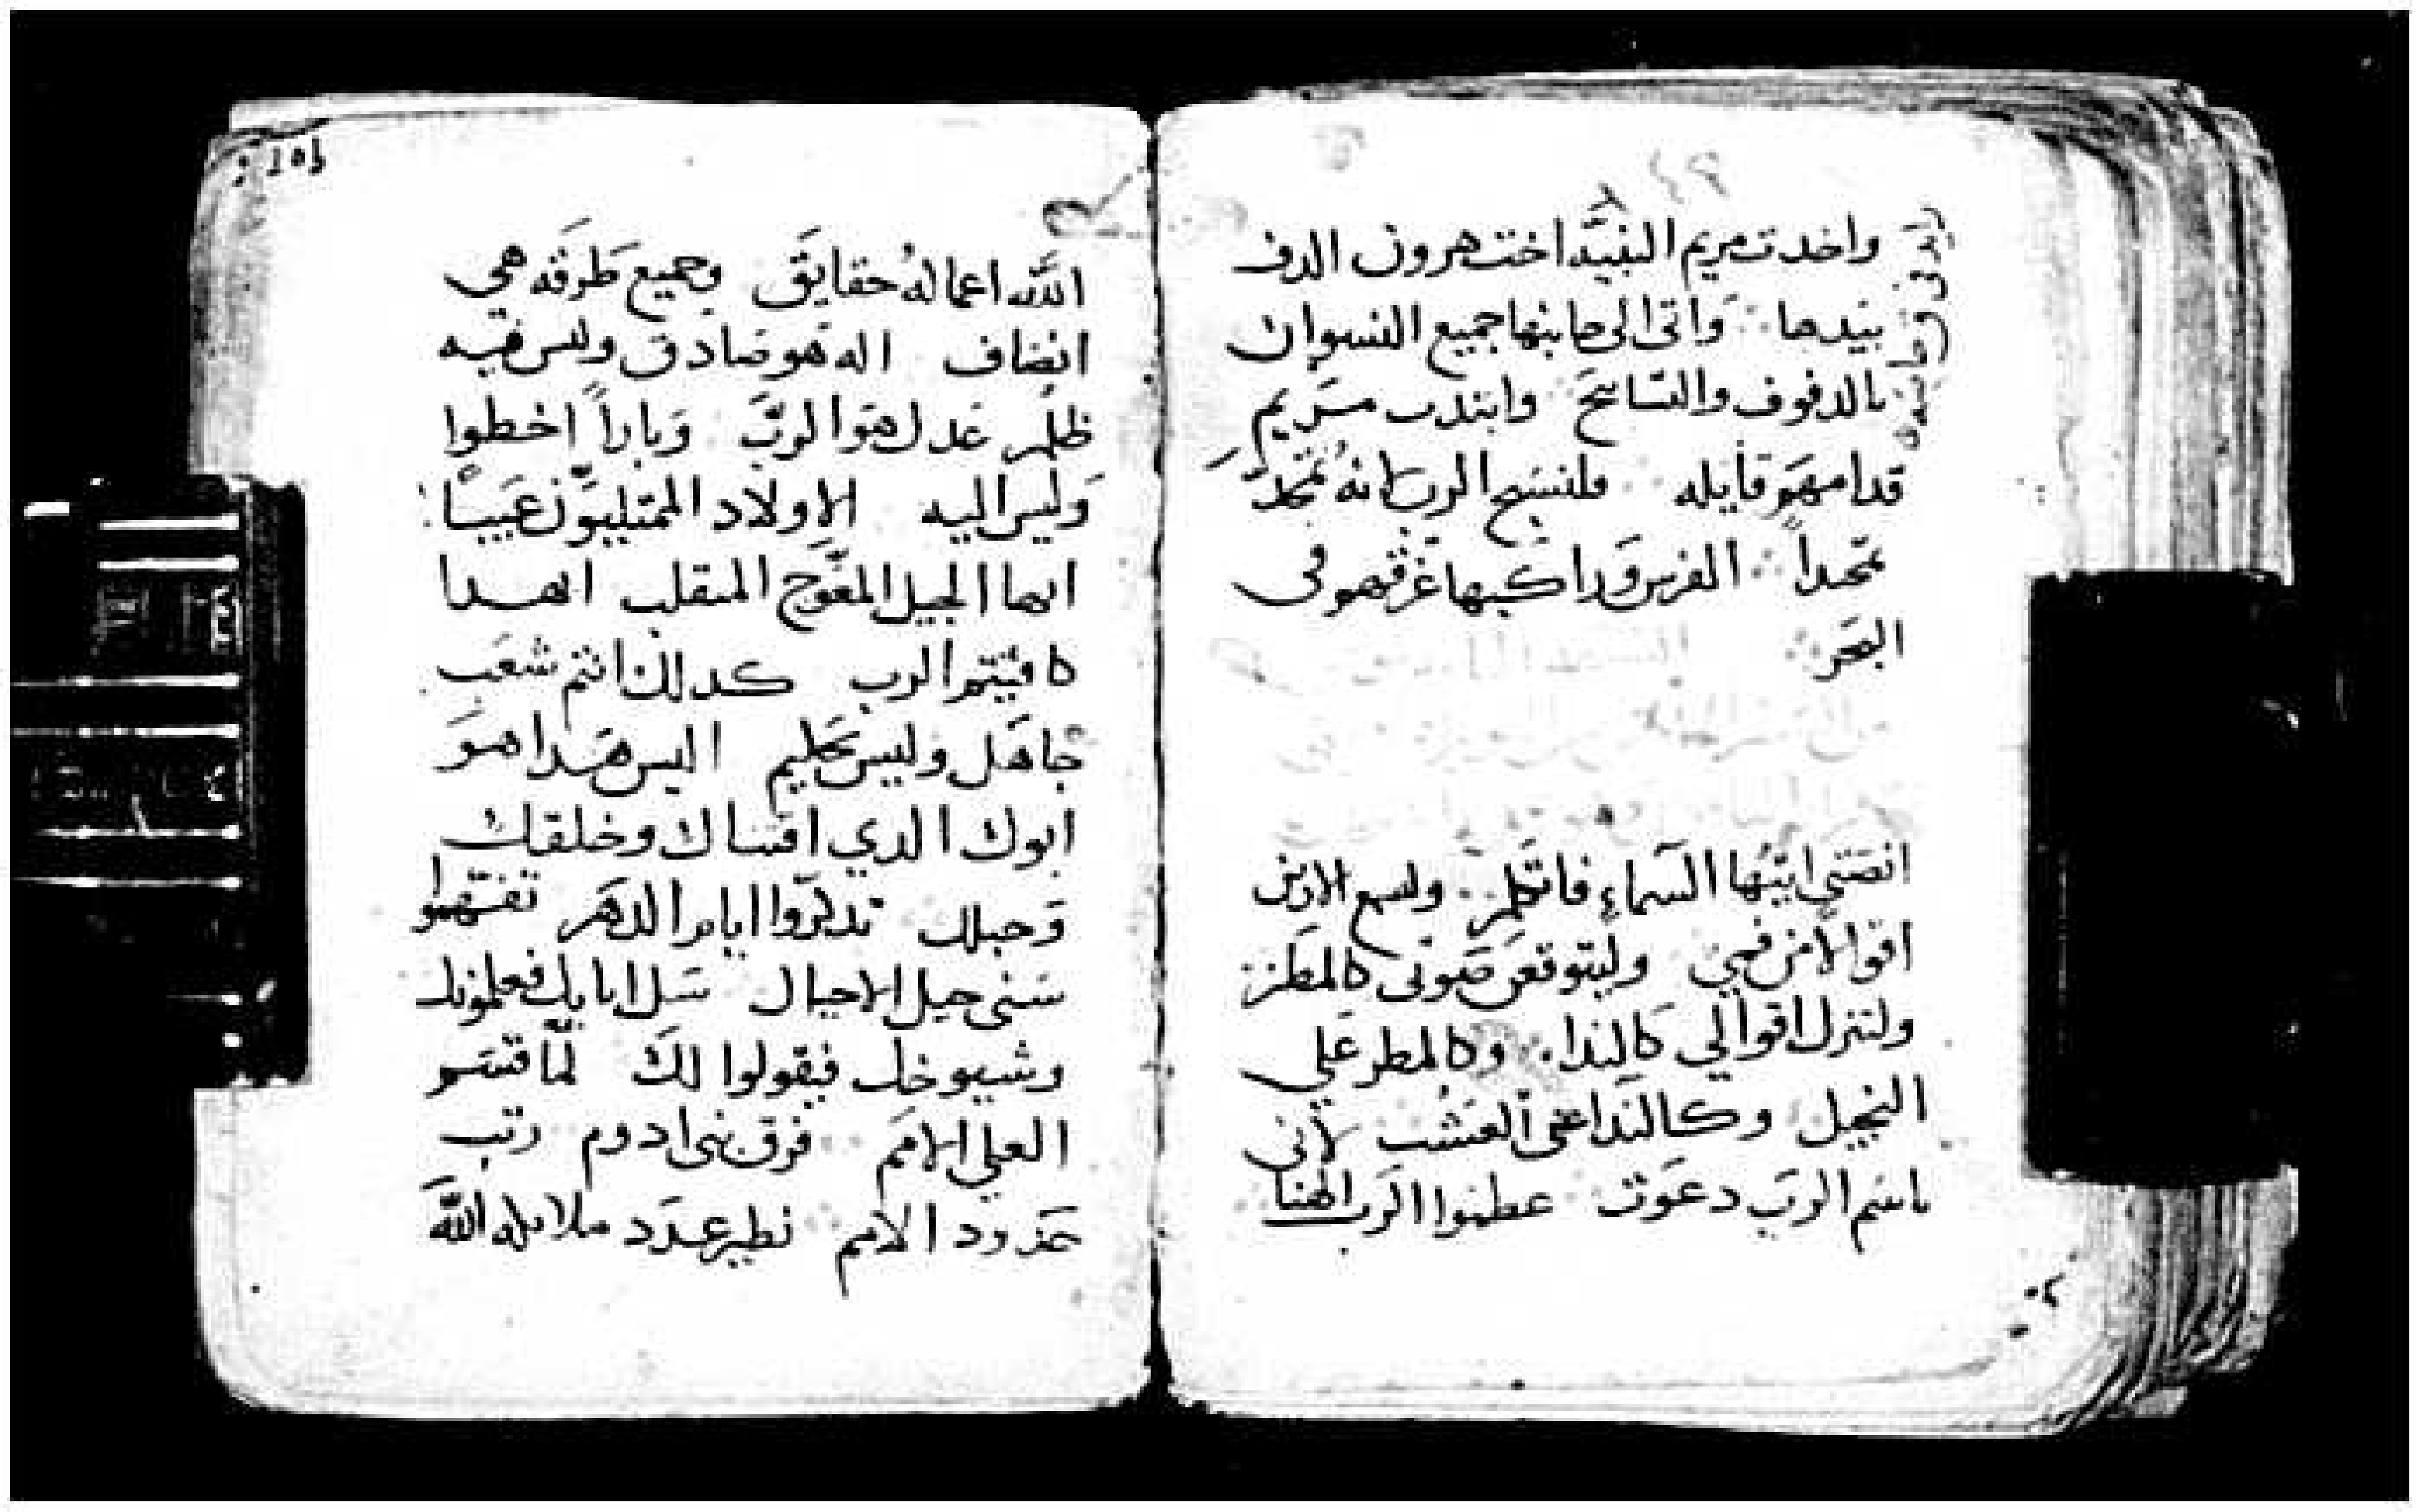 واخدت مريم النبيَّه اخت هرون الدف
بيدها واتى الى جانبها جميع النسوان
بالدفوف والتسابيح وابتدت مريم
قدامهم قايله فلنسبح الرب لانه تمجد
تمجداً الفرس وراكبها غرقهم في
البحر
انصتي ايتها السماء فاتكلم ولتسمع الارض
اقوالاً من فمي وليتوقع صوتي كالمطر
ولتنزل اقوالي كالندا وكالمطر علي
النجيل وكالندا على العشب لاني
باسم الرب دعوت عظموا الرب الهنا
الله اعماله حقايق وجميع طرقه هي
انصاف اله هو صادق وليس فيه
ظلم عدل هو الرب وباراً اخطوا
وليس اليه الاولاد الممتليون عيباً
ايها الجيل المعوج المنقلب اهدا
كافيتم الرب كدلك انتم شعب
جاهل وليس حكيم اليس هدا هو
ابوك الدي اقتناك وخلقك
وجبلك تدكروا ايام الدهر تفهموا
سني جيل الاجيال سل اباك فيعلمونك
وشيوخك فيقولوا لك لما قسم
العلي الامم فرق بنى ادوم رتب
حدود الامم نظير عدد ملايكة الله